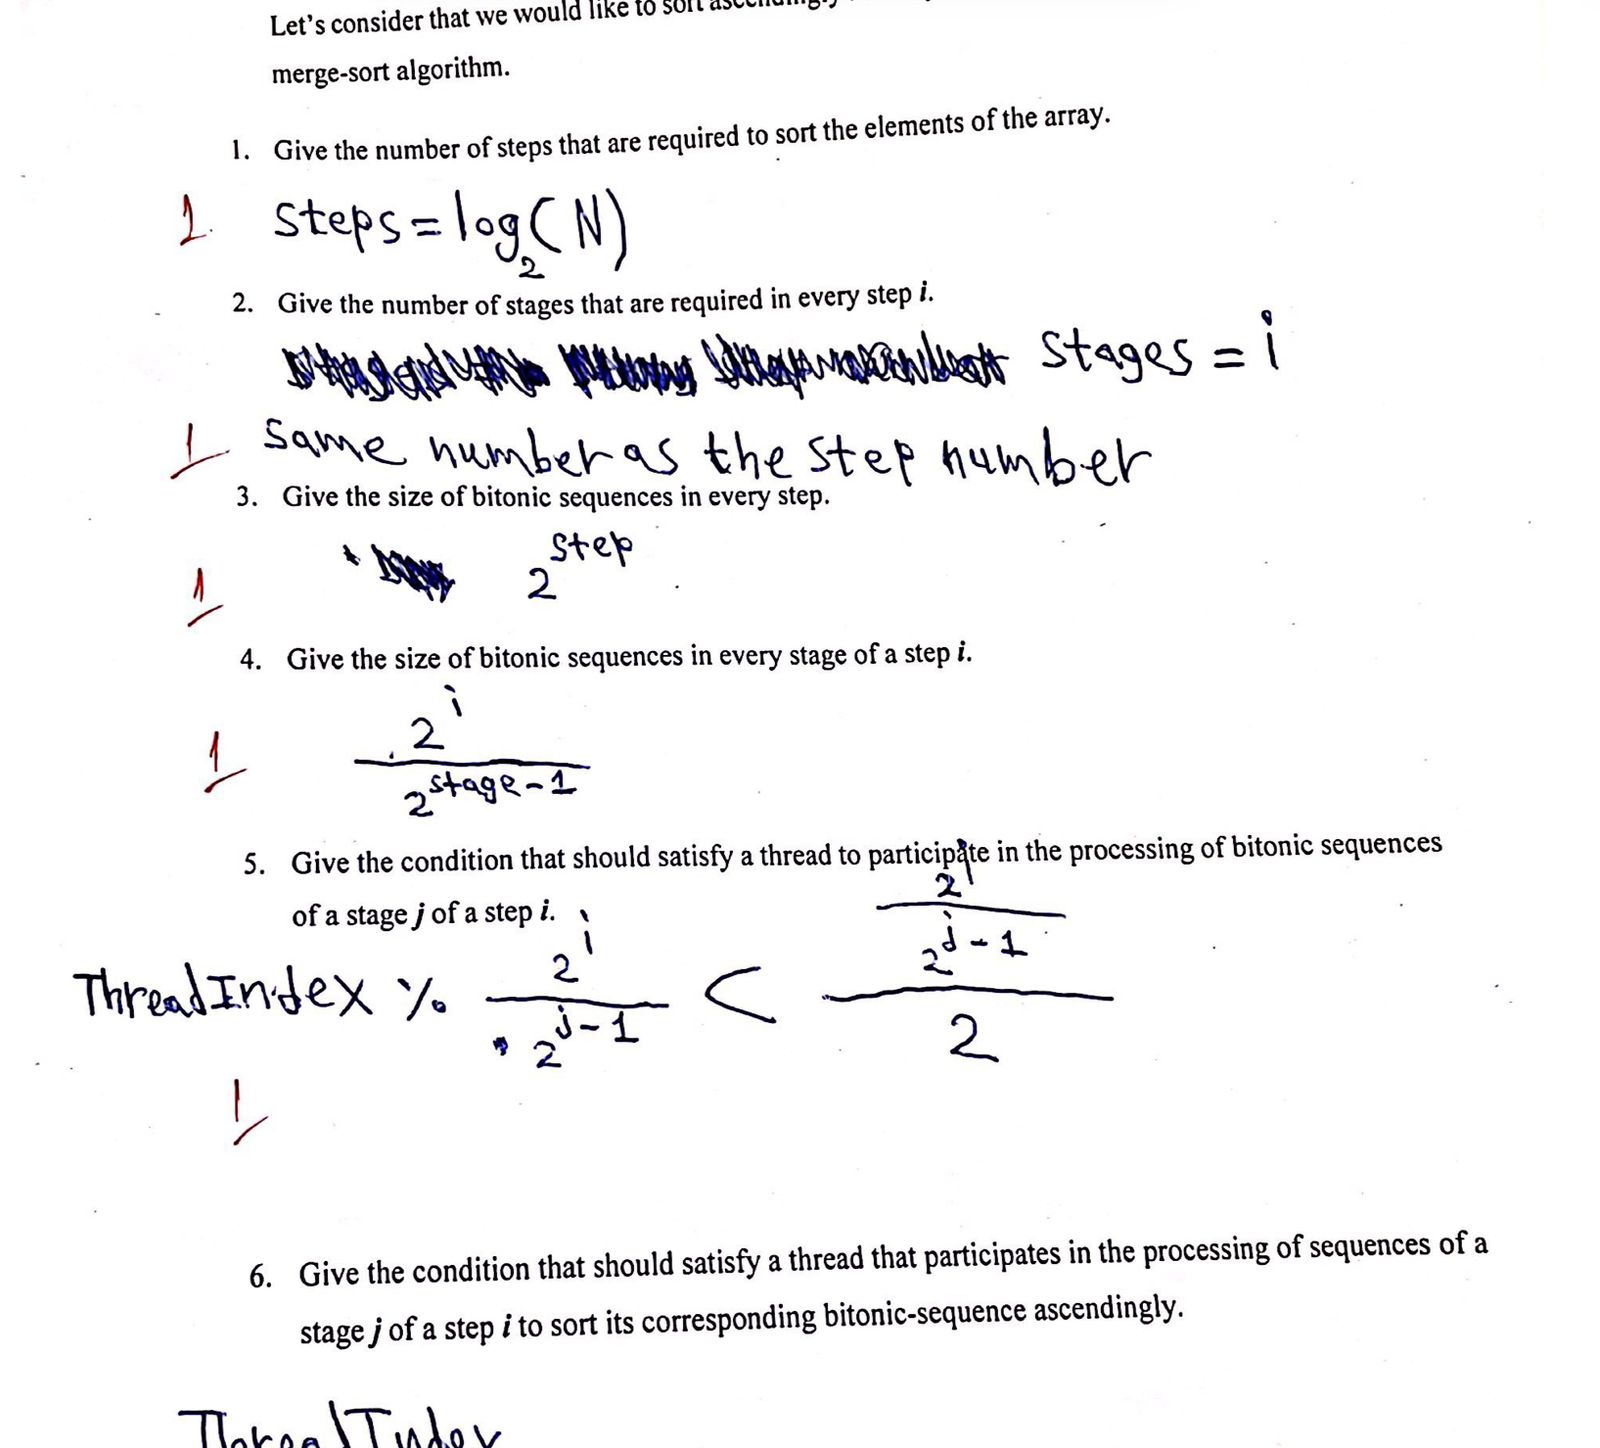 Let's consider that we would like to sort ascendingly
merge-sort algorithm.
1. Give the number of steps that are required to sort the elements of the array.
1 steps = log₂(N)
2. Give the number of stages that are required in every step i.
stages = i
1 same number as the step number
3. Give the size of bitonic sequences in every step.
1 2^step
4. Give the size of bitonic sequences in every stage of a step i.
1 2^i / 2^(stage-1)
5. Give the condition that should satisfy a thread to participate in the processing of bitonic sequences
of a stage j of a step i.
ThreadIndex % 2^i / 2^(j-1) < (2^i / 2^(j-1)) / 2
1
6. Give the condition that should satisfy a thread that participates in the processing of sequences of a
stage j of a step i to sort its corresponding bitonic-sequence ascendingly.
ThreadIndex